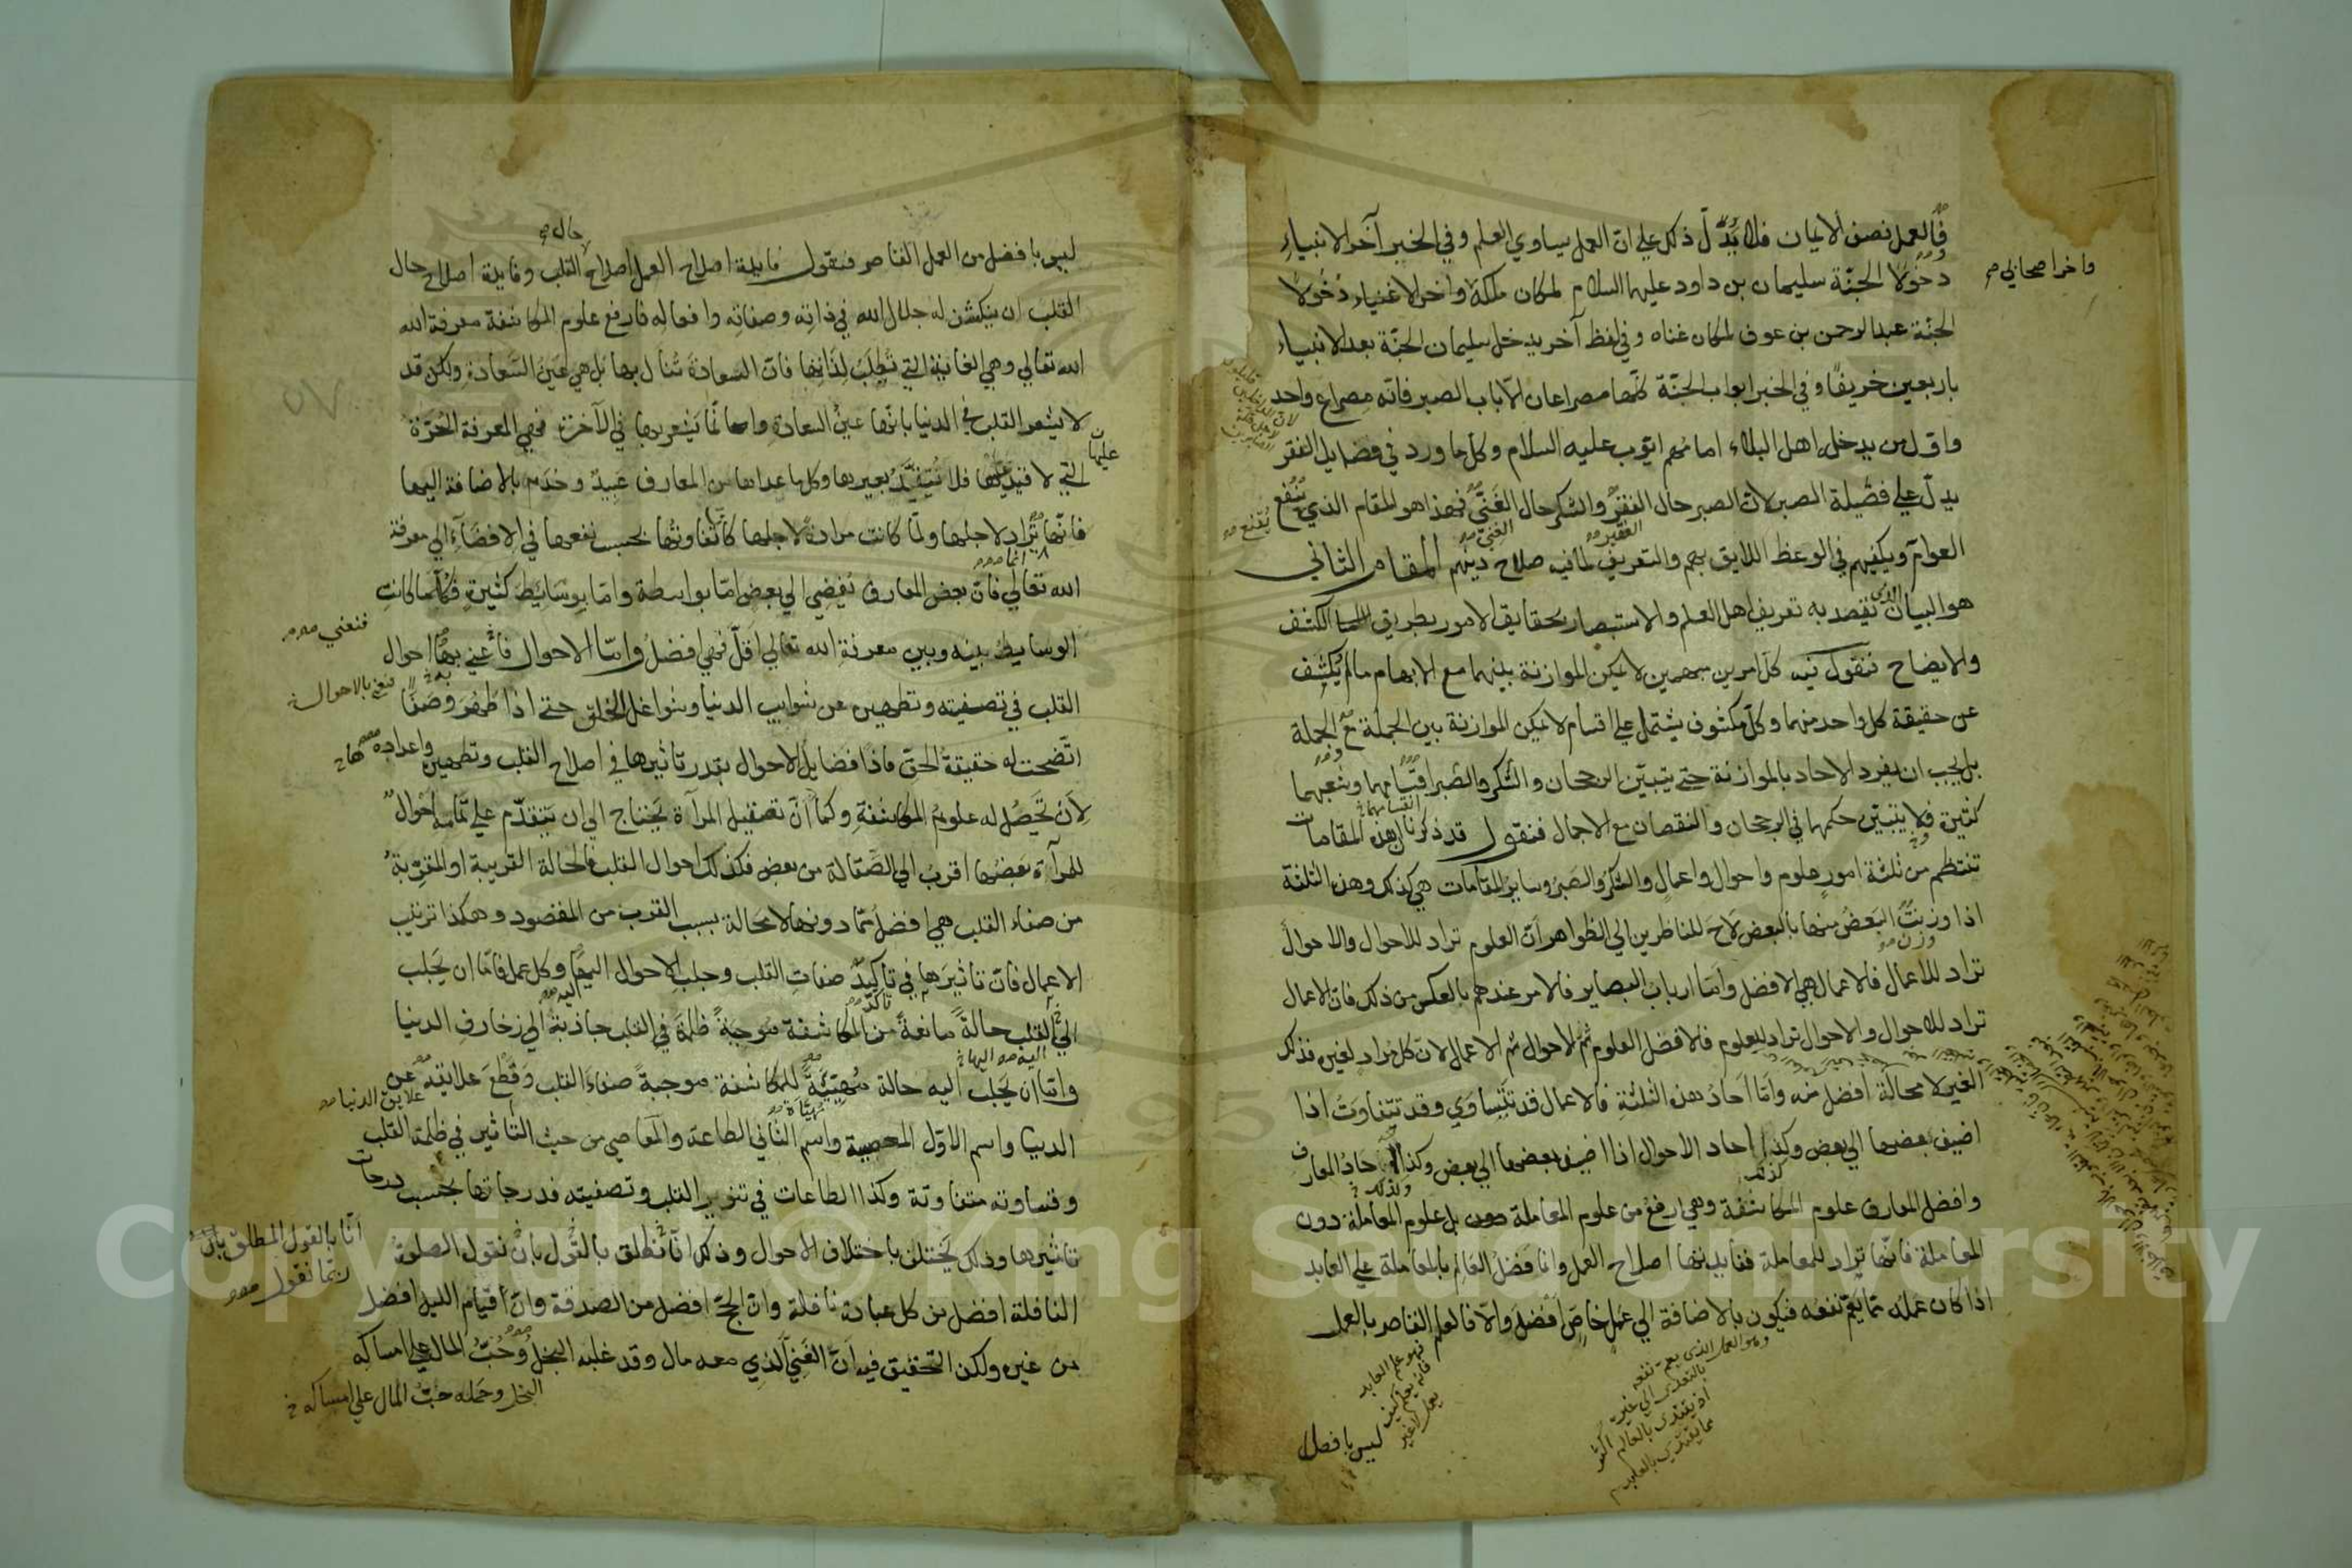 فالعمل نصف الايمان فلا يدل ذلك على ان العمل يساوي العلم وفي الخبر آخر الانبياء
دخولا الجنة سليمان بن داود عليهما السلام لمكان ملكه واخر الاغنياء دخولا
الجنة عبدالرحمن بن عوف لمكان غناه وفي لفظ آخر يدخل سليمان الجنة بعد الانبياء
باربعين خريفا وفي الخبر ابواب الجنة كلها مصراعان الا باب الصبر فانه مصراع واحد
واول من يدخله اهل البلاء امامهم ايوب عليه السلام وكل ما ورد في فضايل الفقر
يدل على فضيلة الصبر لان الصبر حال الفقر والشكر حال الغني فهذا هو المقام الذي ينفع
العوام ويكفيهم في الوعظ اللايق بهم والتعريف لما فيه صلاح دينهم المقام الثاني
هو البيان الذي نقصد به تعريف اهل العلم والاستبصار بحقايق الامور بطريق الكشف
والايضاح فنقول فيه كل امرين مبهمين لا يمكن الموازنة بينهما مع الابهام ما لم يكشف
عن حقيقة كل واحد منهما وكل مكشوف يشتمل على اقسام لا يمكن الموازنة بين الجملة مع الجملة
بل يجب ان يفرد الاحاد بالموازنة حتى يتبين الرجحان والشكر والصبر اقسامهما وشعبهما
كثيرة فلا يتبين حكمهما في الرجحان والنقصان مع الاجمال فنقول قد ذكرنا ان هذه المقامات
تنتظم من ثلثة امور علوم واحوال واعمال والشكر والصبر وساير المقامات هي كذلك وهذه الثلثة
اذا وزنت البعض منها بالبعض لاح للناظرين الى الظواهر ان العلوم تراد للاحوال والاحوال
تراد للاعمال فالاعمال هي الافضل واما ارباب البصاير فالامر عندهم بالعكس من ذلك فان الاعمال
تراد للاحوال والاحوال تراد للعلوم فالافضل العلوم ثم الاحوال ثم الاعمال لان كل مراد لغيره فذلك
الغير لا محالة افضل منه واما احاد هذه الثلثة فالاعمال قد تتساوي وقد تتفاوت اذا
اضيف بعضها الى بعض وكذا احاد الاحوال اذا اضيف بعضها الى بعض وكذا احاد المعارف
وافضل المعارف علوم المكاشفة وهي ارفع من علوم المعاملة بل علوم المعاملة دون
المعاملة فانها تراد للمعاملة ففايدتها اصلاح العمل وانما فضل العالم بالمعاملة على العابد
اذا كان علمه مما يعم نفعه فيكون بالاضافة الى عمل خاص افضل والا فالعلم القاصر بالعمل
ليس بافضل
واخر اصحابي
يقنع
الفقير
الغني
وزن
وهو العمل الذي يعم نفعه
بالتعدي الى غيره
اذ يقتدى بالعالم اكثر
مما يقتدى بالعابد
ليس بافضل من العمل القاصر فنقول فايدة اصلاح العمل اصلاح القلب وفايدة اصلاح حال
القلب ان ينكشف له جلال الله في ذاته وصفاته وافعاله فارفع علوم المكاشفة معرفة الله
الله تعالى وهي الغاية التي تطلب لذاتها فان السعادة تنال بها بل هي عين السعادة ولكن قد
لا يشعر القلب في الدنيا بانها عين السعادة وانما يشعر بها في الآخرة فهي المعرفة الحرة
التي لا قيد عليها فلا تتقيد بغيرها وكل ما عداها من المعارف عبيد وخدم بالاضافة اليها
فانها تراد لاجلها ولما كانت مرادة لاجلها كان تفاوتها بحسب نفعها في الافضاء الى معرفة
الله تعالى فان بعض المعارف يفضي الى بعض اما بواسطة واما بوسائط كثيرة فكلما كانت
الوسايط بينه وبين معرفة الله تعالى اقل فهي افضل واما الاحوال فاعني بها احوال
القلب في تصفيته وتطهيره عن شوايب الدنيا وشواغل الخلق حتى اذا طهر وصفا
اتضحت له حقيقة الحق فاذا فضايل الاحوال بقدر تاثيرها في اصلاح القلب وتطهيره واعداده
لان تحصل له علوم المكاشفة وكما ان تصقيل المرآة يحتاج الى ان يتقدم على تمامه احوال
للمرآة بعضها اقرب الى الصقالة من بعض فكذلك احوال القلب فالحالة القريبة او المقربة
من صفاء القلب هي افضل مما دونها لا محالة بسبب القرب من المقصود وهكذا ترتيب
الاعمال فان تاثيرها في تاكيد صفات القلب وجلب الاحوال اليها وكل عمل فاما ان يجلب
الى القلب حالة مانعة من المكاشفة موجبة ظلمة في القلب جاذبة الى زخارف الدنيا
واما ان يجلب اليه حالة مهيئة للمكاشفة موجبة صفاء القلب وقطع علايقه عن
الدنيا واسم الاول المعصية واسم الثاني الطاعة والمعاصي من حيث التأثير في ظلمة القلب
وقساوته متفاوتة وكذا الطاعات في تنوير القلب وتصفيته فدرجاتها بحسب درجات
تاثيرها وذلك يختلف باختلاف الاحوال وذلك انا نطلق بالقول بان نقول الصلوة
النافلة افضل من كل عبادة نافلة وان الحج افضل من الصدقة وان قيام الليل افضل
من غيره ولكن التحقيق فيه ان الغني الذي معه مال وقد غلبه البخل وحب المال على امساكه
حال
عليها
انما
فنعني
فنعني بالاحوال
علايق الدنيا
انا بالقول المطلق بان
ربما نقول
البخل وحمله حب المال على امساكه
Copyright © King Saud University